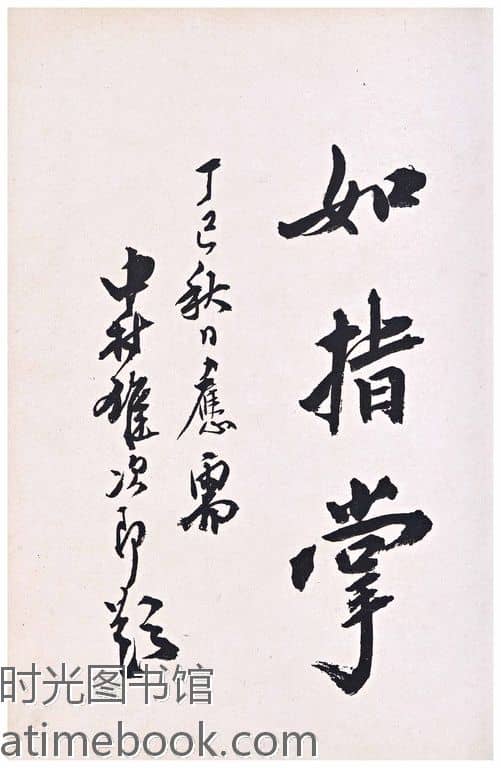 如指掌
丁巳秋日應需
中村雄次郎題
时光图书馆
atimebook.com